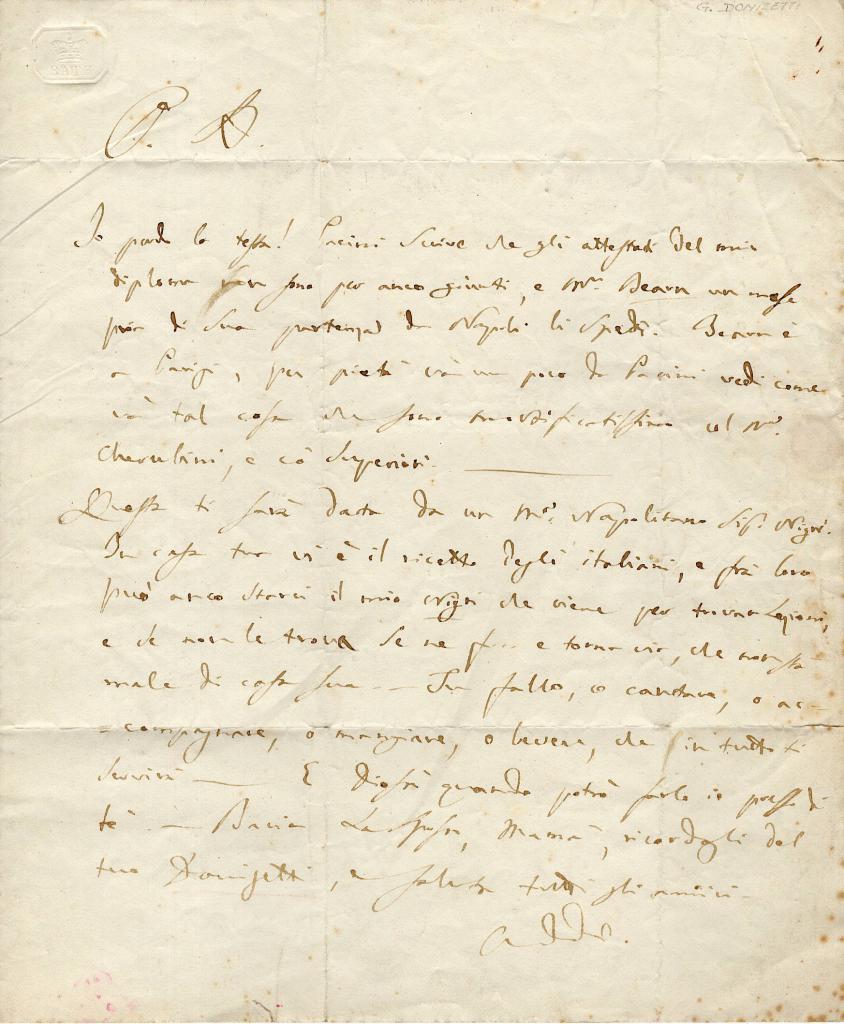 G. DONIZETTI
BATH
C. A.
Io perdo la testa! Pacini scrive che gli attestati del mio
diploma non sono per anco giunti, e Mr. Bearn un mese
pria di sua partenza da Napoli li spedì. Bearn è
a Parigi, per pietà và un poco da Pacini vedi come
và tal cosa che sono mortificatissimo col Mro.
Cherubini, e co' Superiori.
Questa ti sarà data da un Mro. Napolitano Sigr. Nigri.
In casa tua vi è il ricetto degli italiani, e frà loro
può anco starci il mio Nigri che viene per trovar Lezioni,
e se non le trova se ne f... e torna via, che non stà
male di casa sua — Tu fallo, o cantare, o ac-
-compagnare, o mangiare, o bevere, che in tutto ti
servirà — E Dio sà quando potrò farlo io presso di
tè — Bacia La Sposa, Mamà, ricordagli del
tuo Donizetti, e saluta tutti gli amici.
Addio.